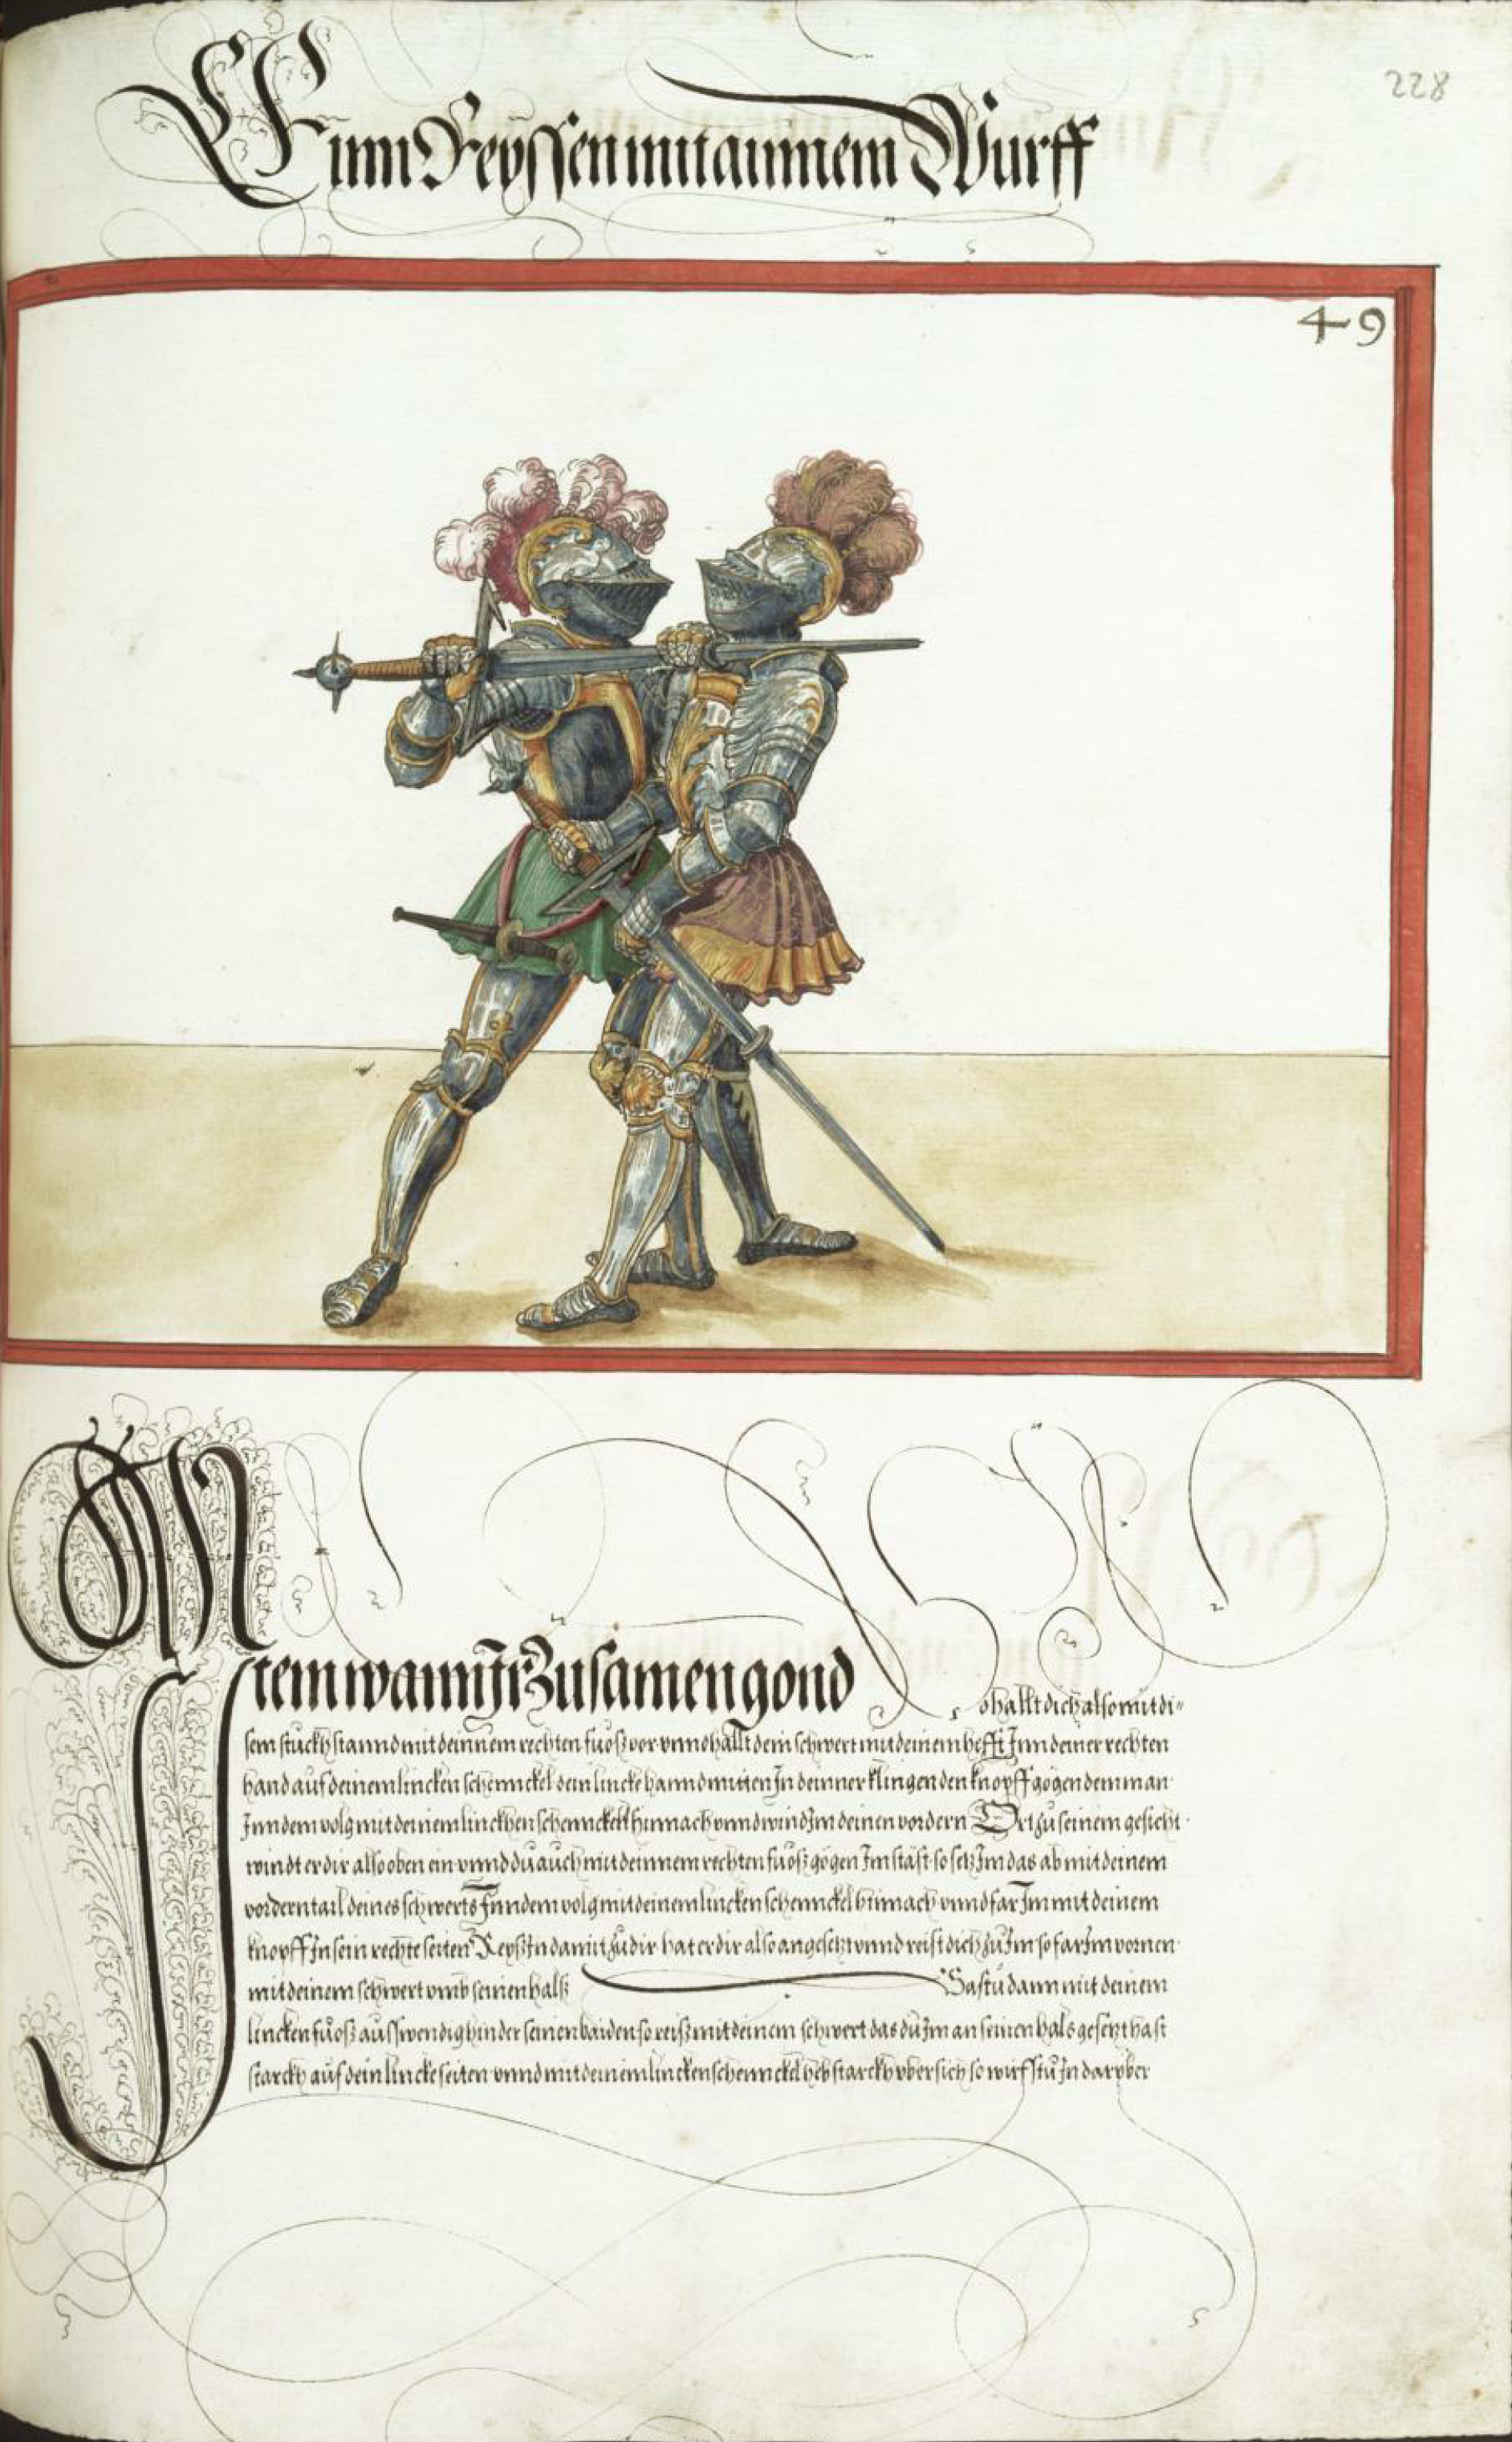 228
Ein Reyssen mit ainnem Wurff
49
Item wann Ir Zusamen gond
so hallt dich also mit di-
sem stuckh stannd mit deinnem rechten fuosz vor vnnd hallt dein schwert mit deinem hefft Inn deiner rechten
hand auf deinem lincken schennckel dein lincke hannd mitten In deinner klingen den knopff gogen dem man
Inn dem volg mit deinem linckhen schennckell hinnach vnnd wind Im deinen vordern Ort zu seinem gesicht
windt er dir also oben ein vnnd du auch mit deinnem rechten fuosz gogen Im stast so setz Im das ab mit deinem
vordern tail deines schwerts Inn dem volg mit deinem lincken schennckel hinnach vnnd far Im mit deinem
knopff In sein rechte seiten Reysz In damit zu dir hat er dir also angesetzt vnnd reist dich zu Im so far Im vornen
mit deinem schwert vmb seinen halsz
Sastu dann mit deinem
lincken fuosz auswendig hinder seinen baiden so reisz mit deinem schwert das du Im an seinen hals gesetzt hast
starckh auf dein lincke seiten vnnd mit deinem lincken schennckel heb starckh vbersich so wirfstu In daryber